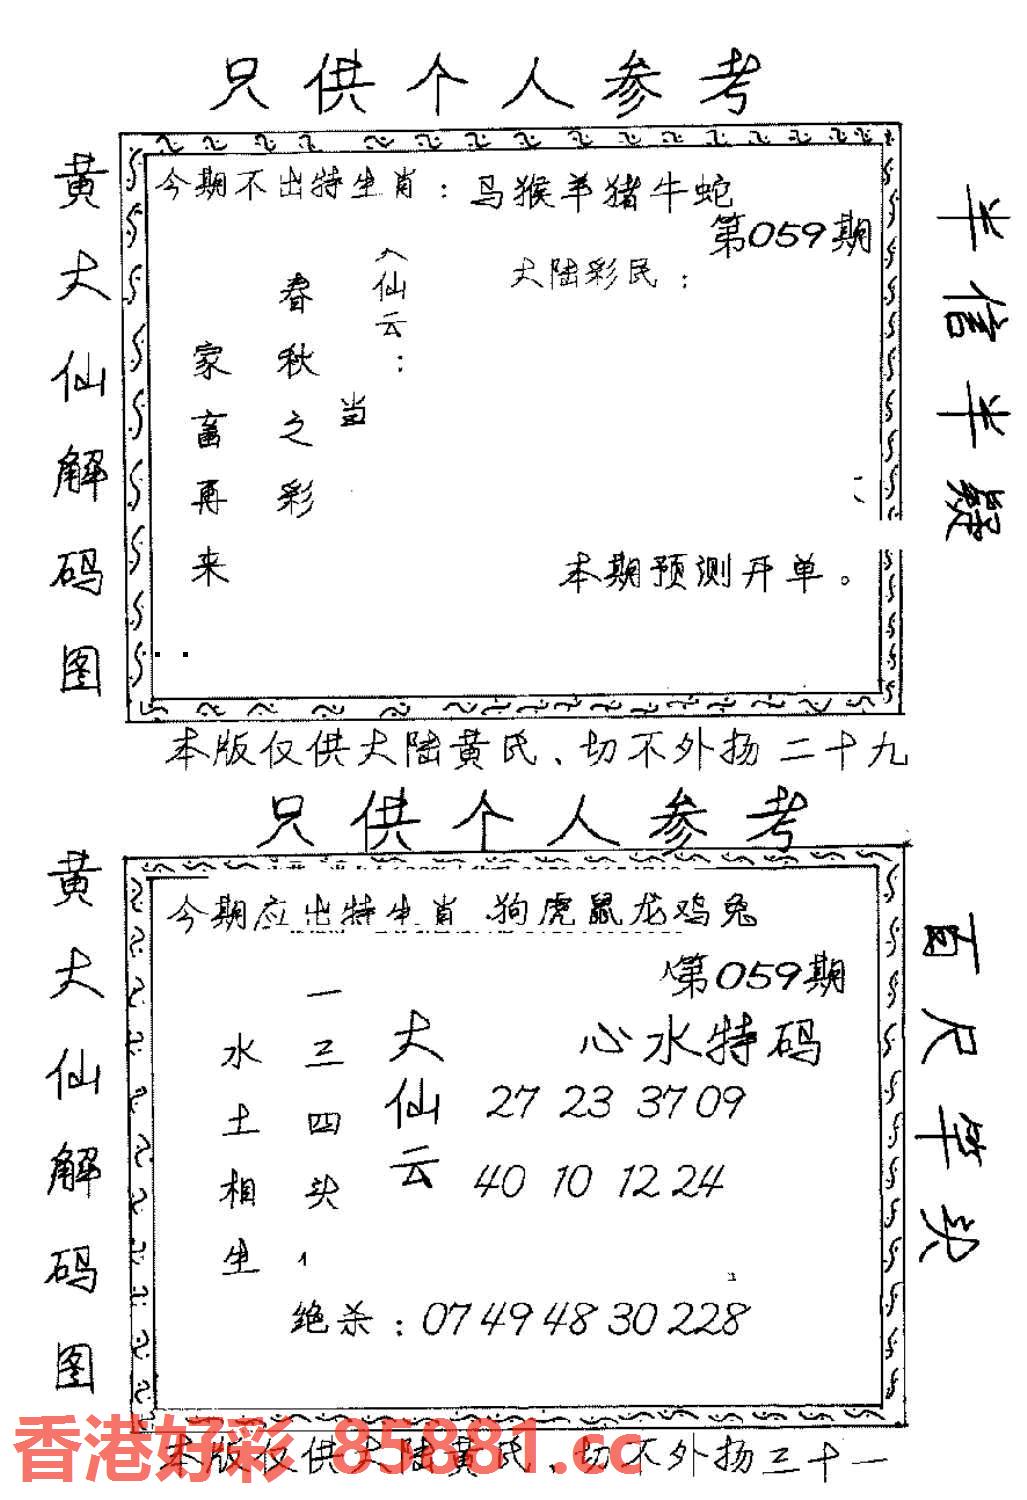 只供个人参考
黄大仙解码图
今期不出特生肖：马猴羊猪牛蛇
第059期
大陆彩民：
大仙云：
当
春秋之彩
家畜再来
本期预测开单。
半信半疑
本版仅供大陆黄氏、切不外扬二十九
只供个人参考
黄大仙解码图
今期应出特生肖 狗虎鼠龙鸡兔
第059期
心水特码
大仙云
一三四头
水土相生
27 23 37 09
40 10 12 24
绝杀：07 49 48 30 228
百尺竿头
本版仅供大陆黄氏、切不外扬三十一
香港好彩 85881.cc